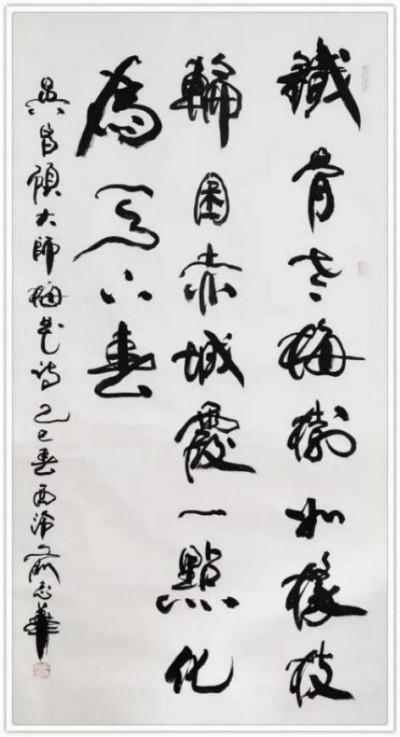 鐵骨老梅樹如椽枝
輪囷赤城霞一點化
為天下春
吳昌碩大師梅花詩乙巳春西泠志華